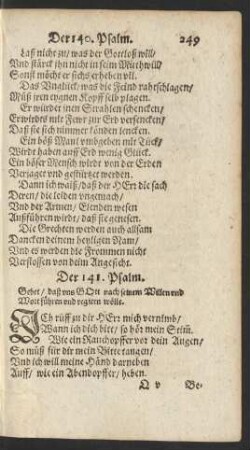 Der 140. Psalm. 249
Laß nicht zu / was der Gottloß will /
Vnd stärck jhn nicht in seim Muthwill /
Sonst möcht er sichs erheben vil.
Das Vnglück / was die Feind rahtschlagen /
Müß jren eygnen Kopff selb plagen.
Er würdet jnen Stralen schencken /
Er wirdts mit Fewr zur Erd versencken /
Daß sie sich nimmer könden lencken.
Ein böß Maul vmbgeben mit Tück /
Wirdt haben auff Erd wenig Glück.
Ein böser Mensch wirdt von der Erden
Verjaget vnd gestürtzet werden.
Dann ich waiß / daß der HErr die sach
Deren / die leiden vngemach /
Vnd der Armen / Elenden wesen
Außführen wirdt / daß sie genesen.
Die Grechten werden auch allsam
Dancken deinem heyligen Nam /
Vnd es werden die Frommen nicht
Verstossen von deim Angesicht.
Der 141. Psalm.
Gebet / daß vns GOtt nach seinem Willen vnd
Wort führen vnd regiern wölle.
ICh rüff zu dir HErr mich vernimb /
Wann ich dich bitt / so hör mein Stim̃.
Wie ein Rauchopffer vor dein Augen /
So müß für dir mein Bitt taugen /
Vnd ich will meine Händ darneben
Auff / wie ein Abendopffer / heben.
Q v Be-